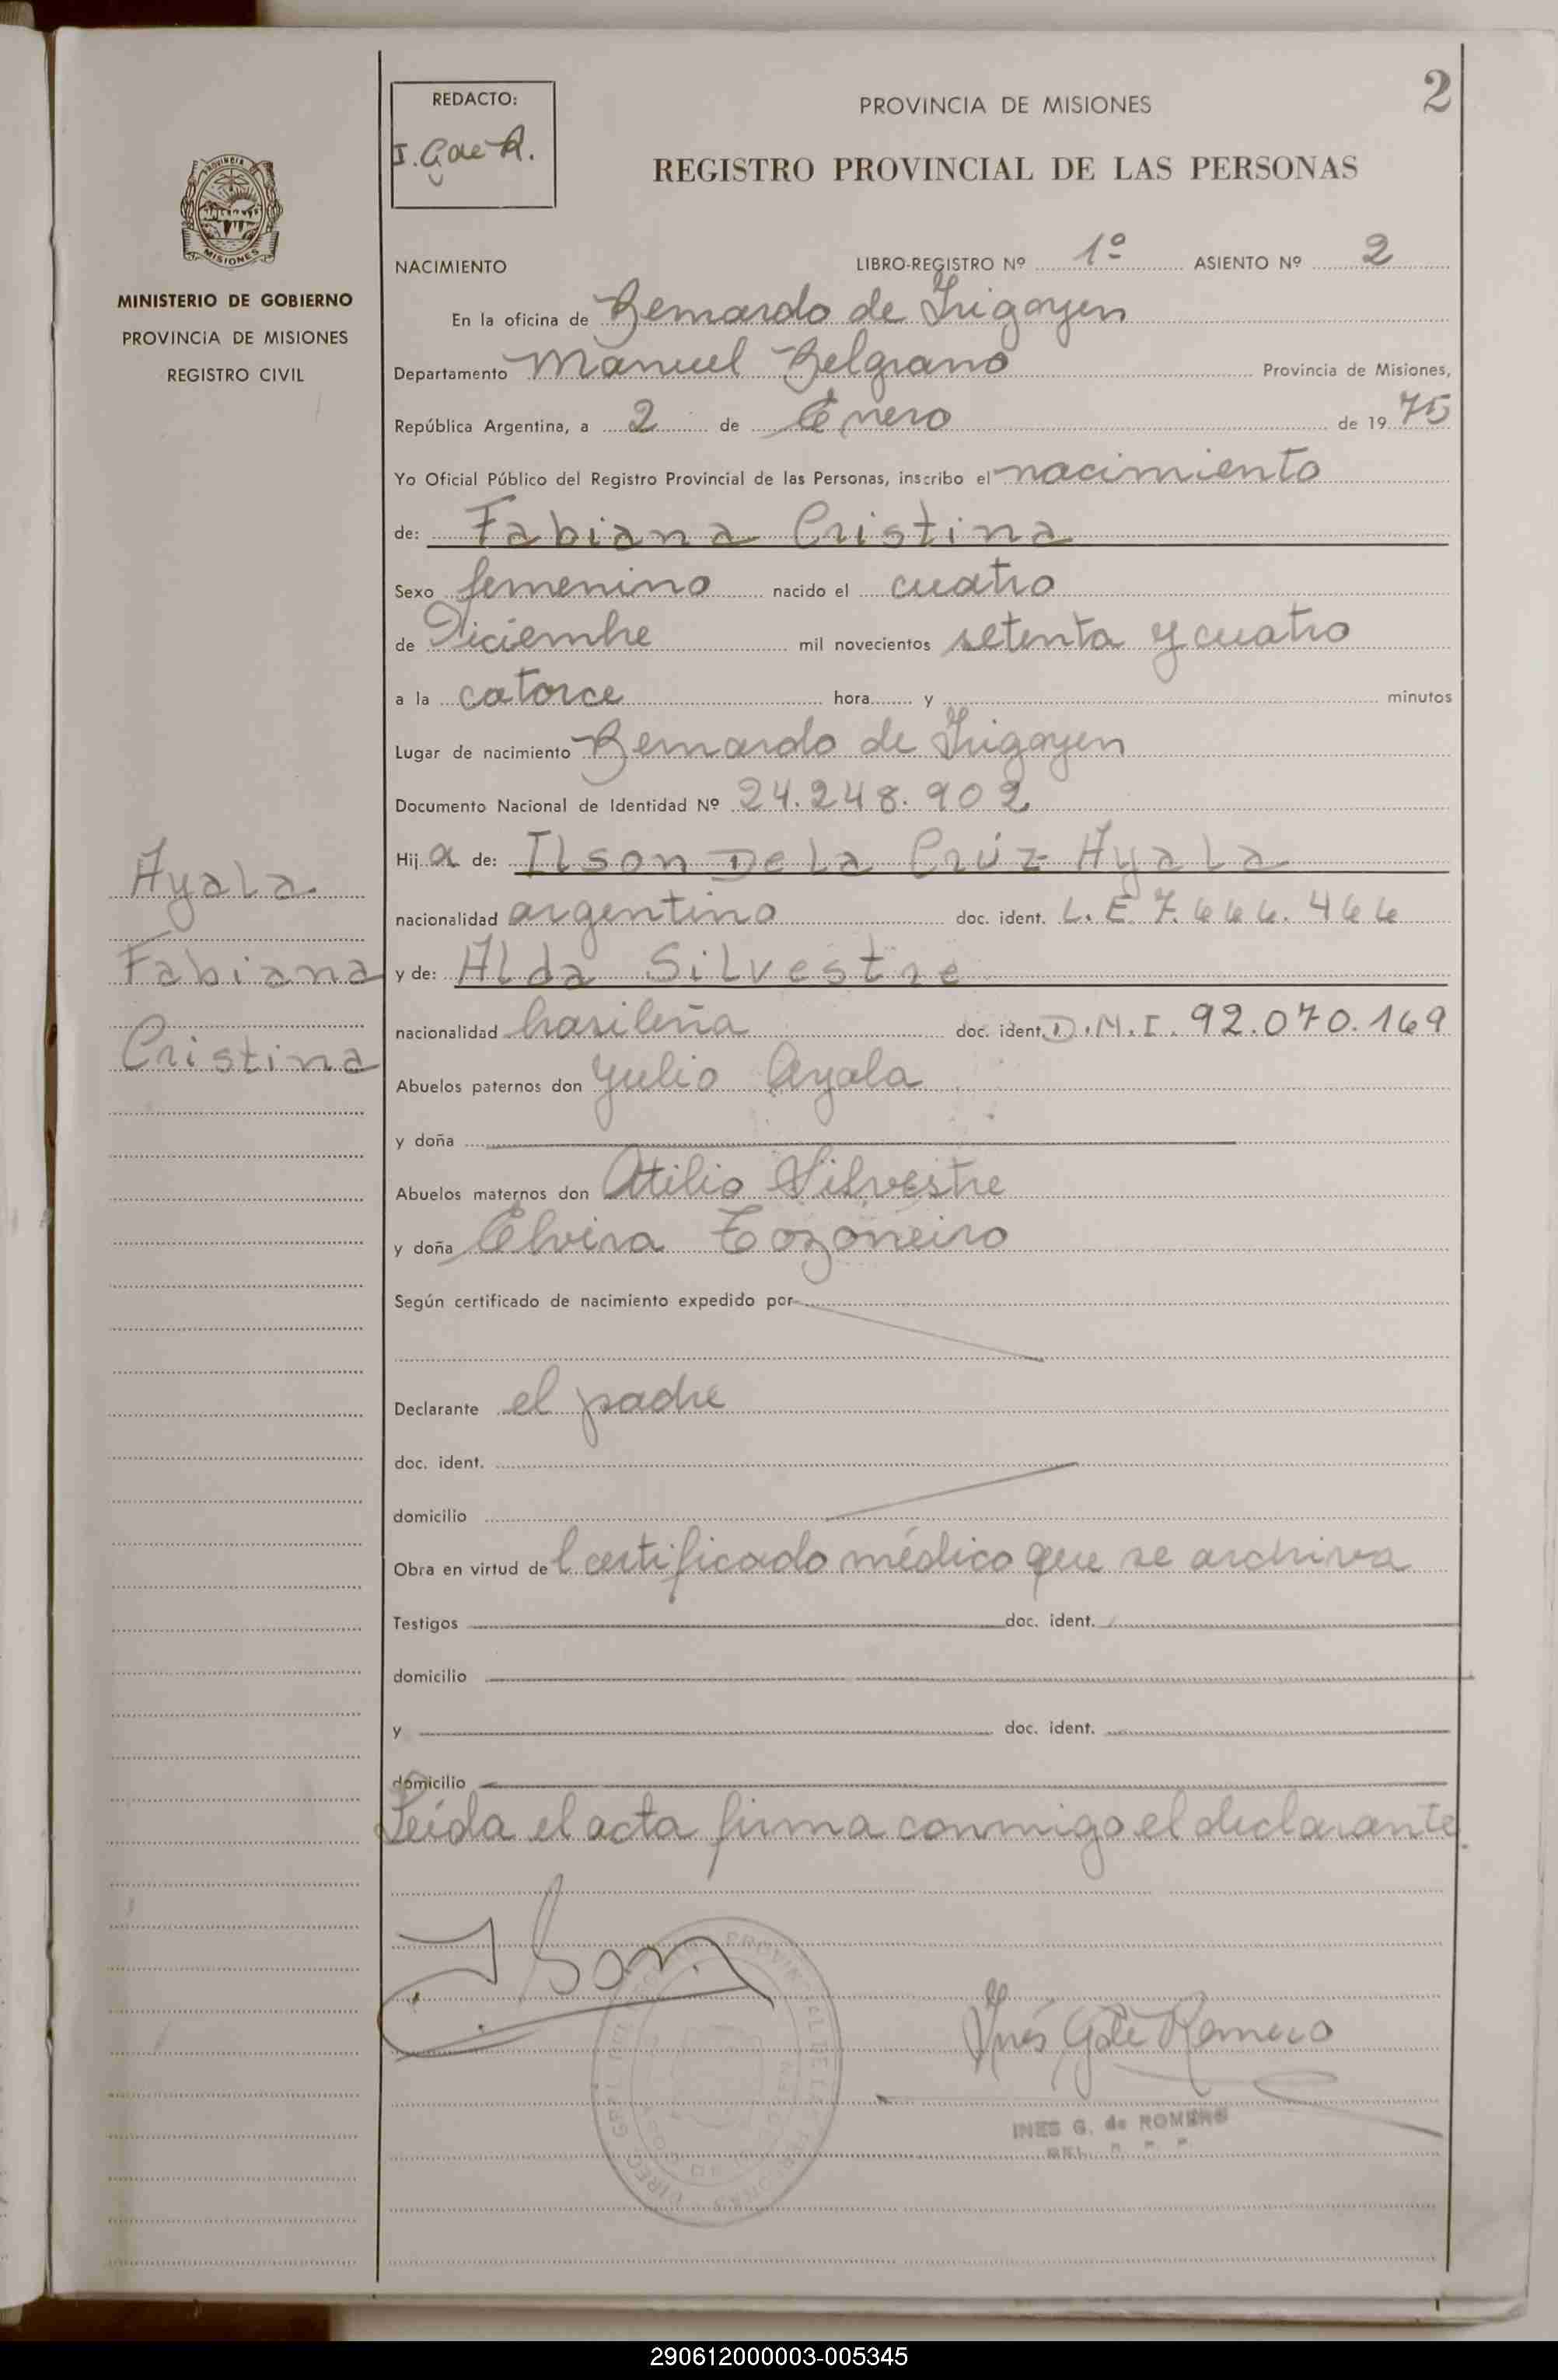 2
REDACTO:
I. G de R.
PROVINCIA DE MISIONES
REGISTRO PROVINCIAL DE LAS PERSONAS
PROVINCIA
MISIONES
MINISTERIO DE GOBIERNO
PROVINCIA DE MISIONES
REGISTRO CIVIL
NACIMIENTO LIBRO-REGISTRO Nº 1º ASIENTO Nº 2
En la oficina de Bernardo de Irigoyen
Departamento Manuel Belgrano Provincia de Misiones,
República Argentina, a 2 de Enero de 1975
Yo Oficial Público del Registro Provincial de las Personas, inscribo el nacimiento
de: Fabiana Cristina
Sexo femenino nacido el cuatro
de Diciembre mil novecientos setenta y cuatro
a la catorce hora y minutos
Lugar de nacimiento Bernardo de Irigoyen
Documento Nacional de Identidad Nº 24.248.902
Hija de: Ilson De la Crúz Ayala
nacionalidad argentino doc. ident. L.E. 7.666.466
y de: Alda Silvestre
nacionalidad brasileña doc. ident. D.N.I. 92.070.169
Abuelos paternos don Yulio Ayala
y doña
Abuelos maternos don Atilio Silvestre
y doña Elvira Tozoneiro
Según certificado de nacimiento expedido por
Declarante el padre
doc. ident.
domicilio
Obra en virtud del certificado médico que se archiva
Testigos doc. ident.
domicilio
y doc. ident.
domicilio
Leída el acta firma conmigo el declarante.
Ayala
Fabiana
Cristina
Ilson
Inés G de Romero
INES G. de ROMERO
290612000003-005345